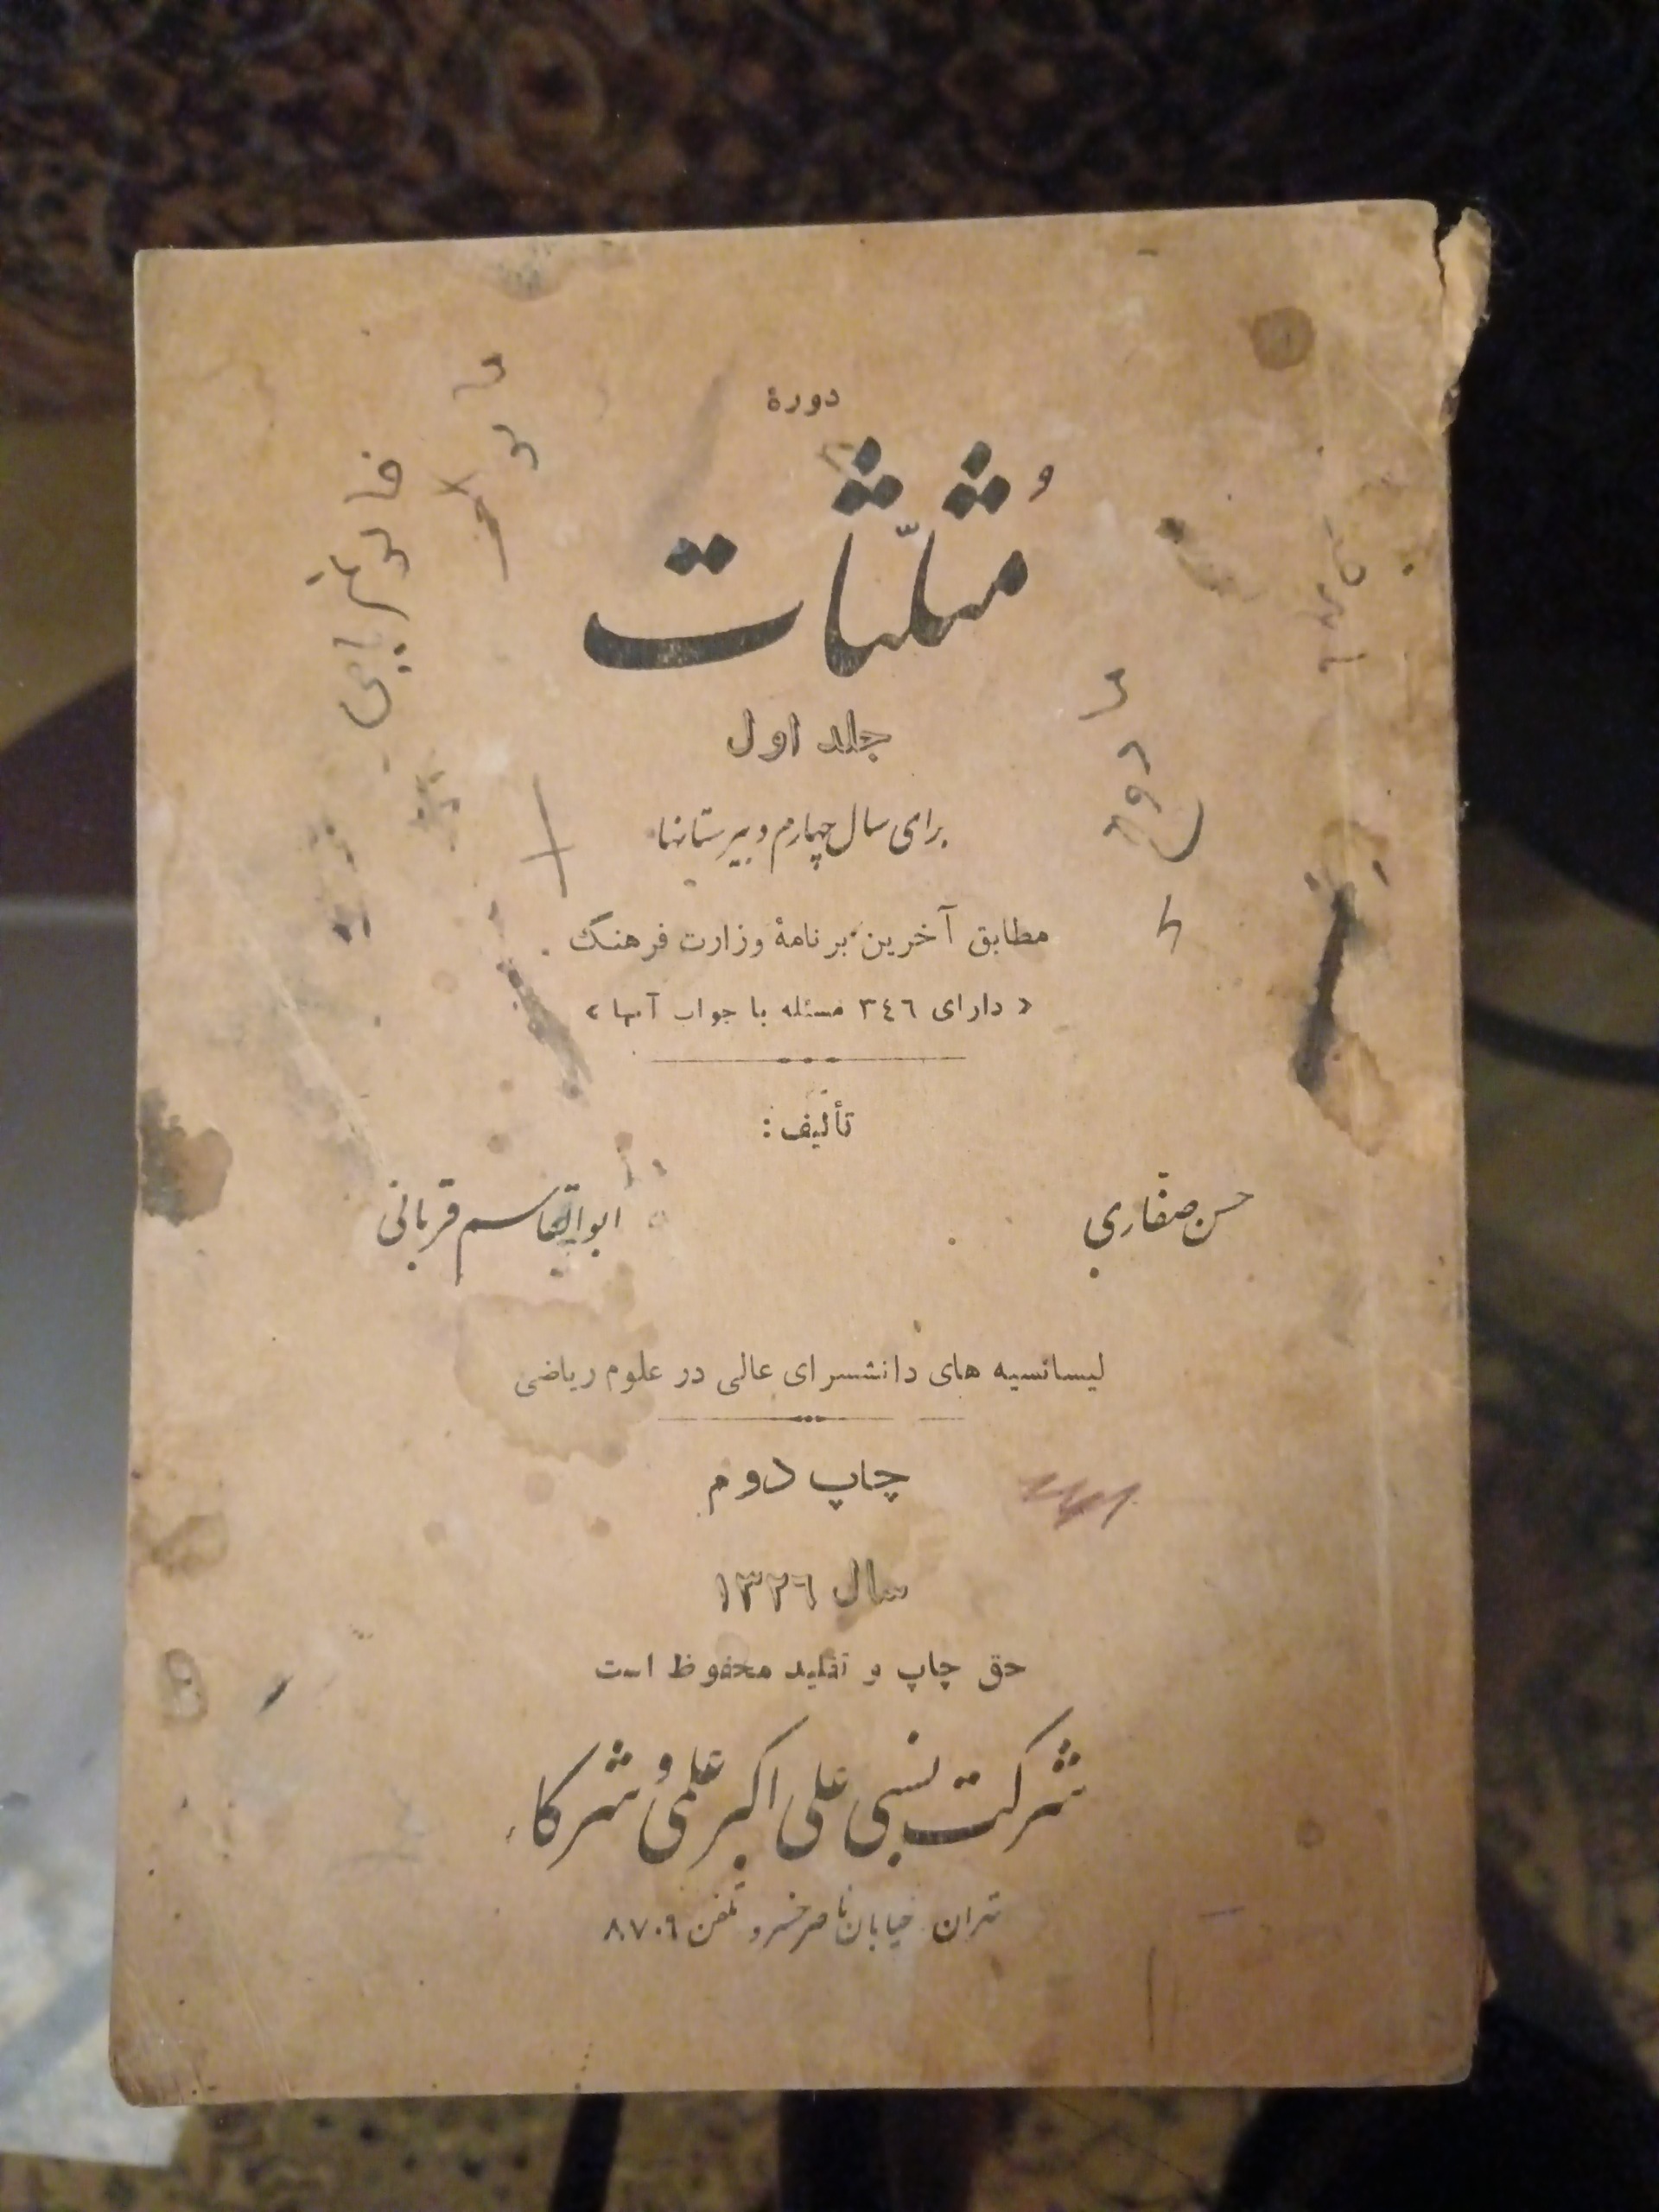 دورهٔ
مُثلّثات
جلد اول
برای سال چهارم دبیرستانها
مطابق آخرین برنامهٔ وزارت فرهنگ
« دارای ٣٤٦ مسئله با جواب آنها »
تألیف :
حسن صفاری
ابوالقاسم قربانی
لیسانسیه های دانشسرای عالی در علوم ریاضی
چاپ دوم
سال ١٣٢٦
حق چاپ و تقلید محفوظ است
شرکت نسبی علی اکبر علمی و شرکاء
تهران خیابان ناصرخسرو تلفن ٨٧٠٩